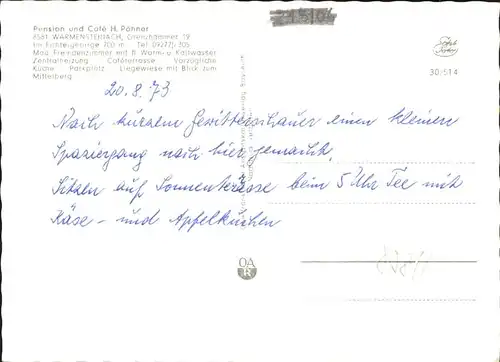 Pension und Café H. Pönner
8581 WARMENSTEINACH, Grenzhammer 19
Im Fichtelgebirge 700 m Tel. 09277/305
Mod. Fremdenzimmer mit fl. Warm- u. Kaltwasser
Zentralheizung Caféterrasse Vorzügliche
Küche Parkplatz Liegewiese mit Blick zum
Mittelberg
30/514
20.8.73
Nach kurzem Gewitterschauer einen kleinen
Spaziergang nach hier gemacht.
Sitzen auf Sonnenterrasse beim 5 Uhr Tee mit
Käse- und Apfelkuchen
OA
R